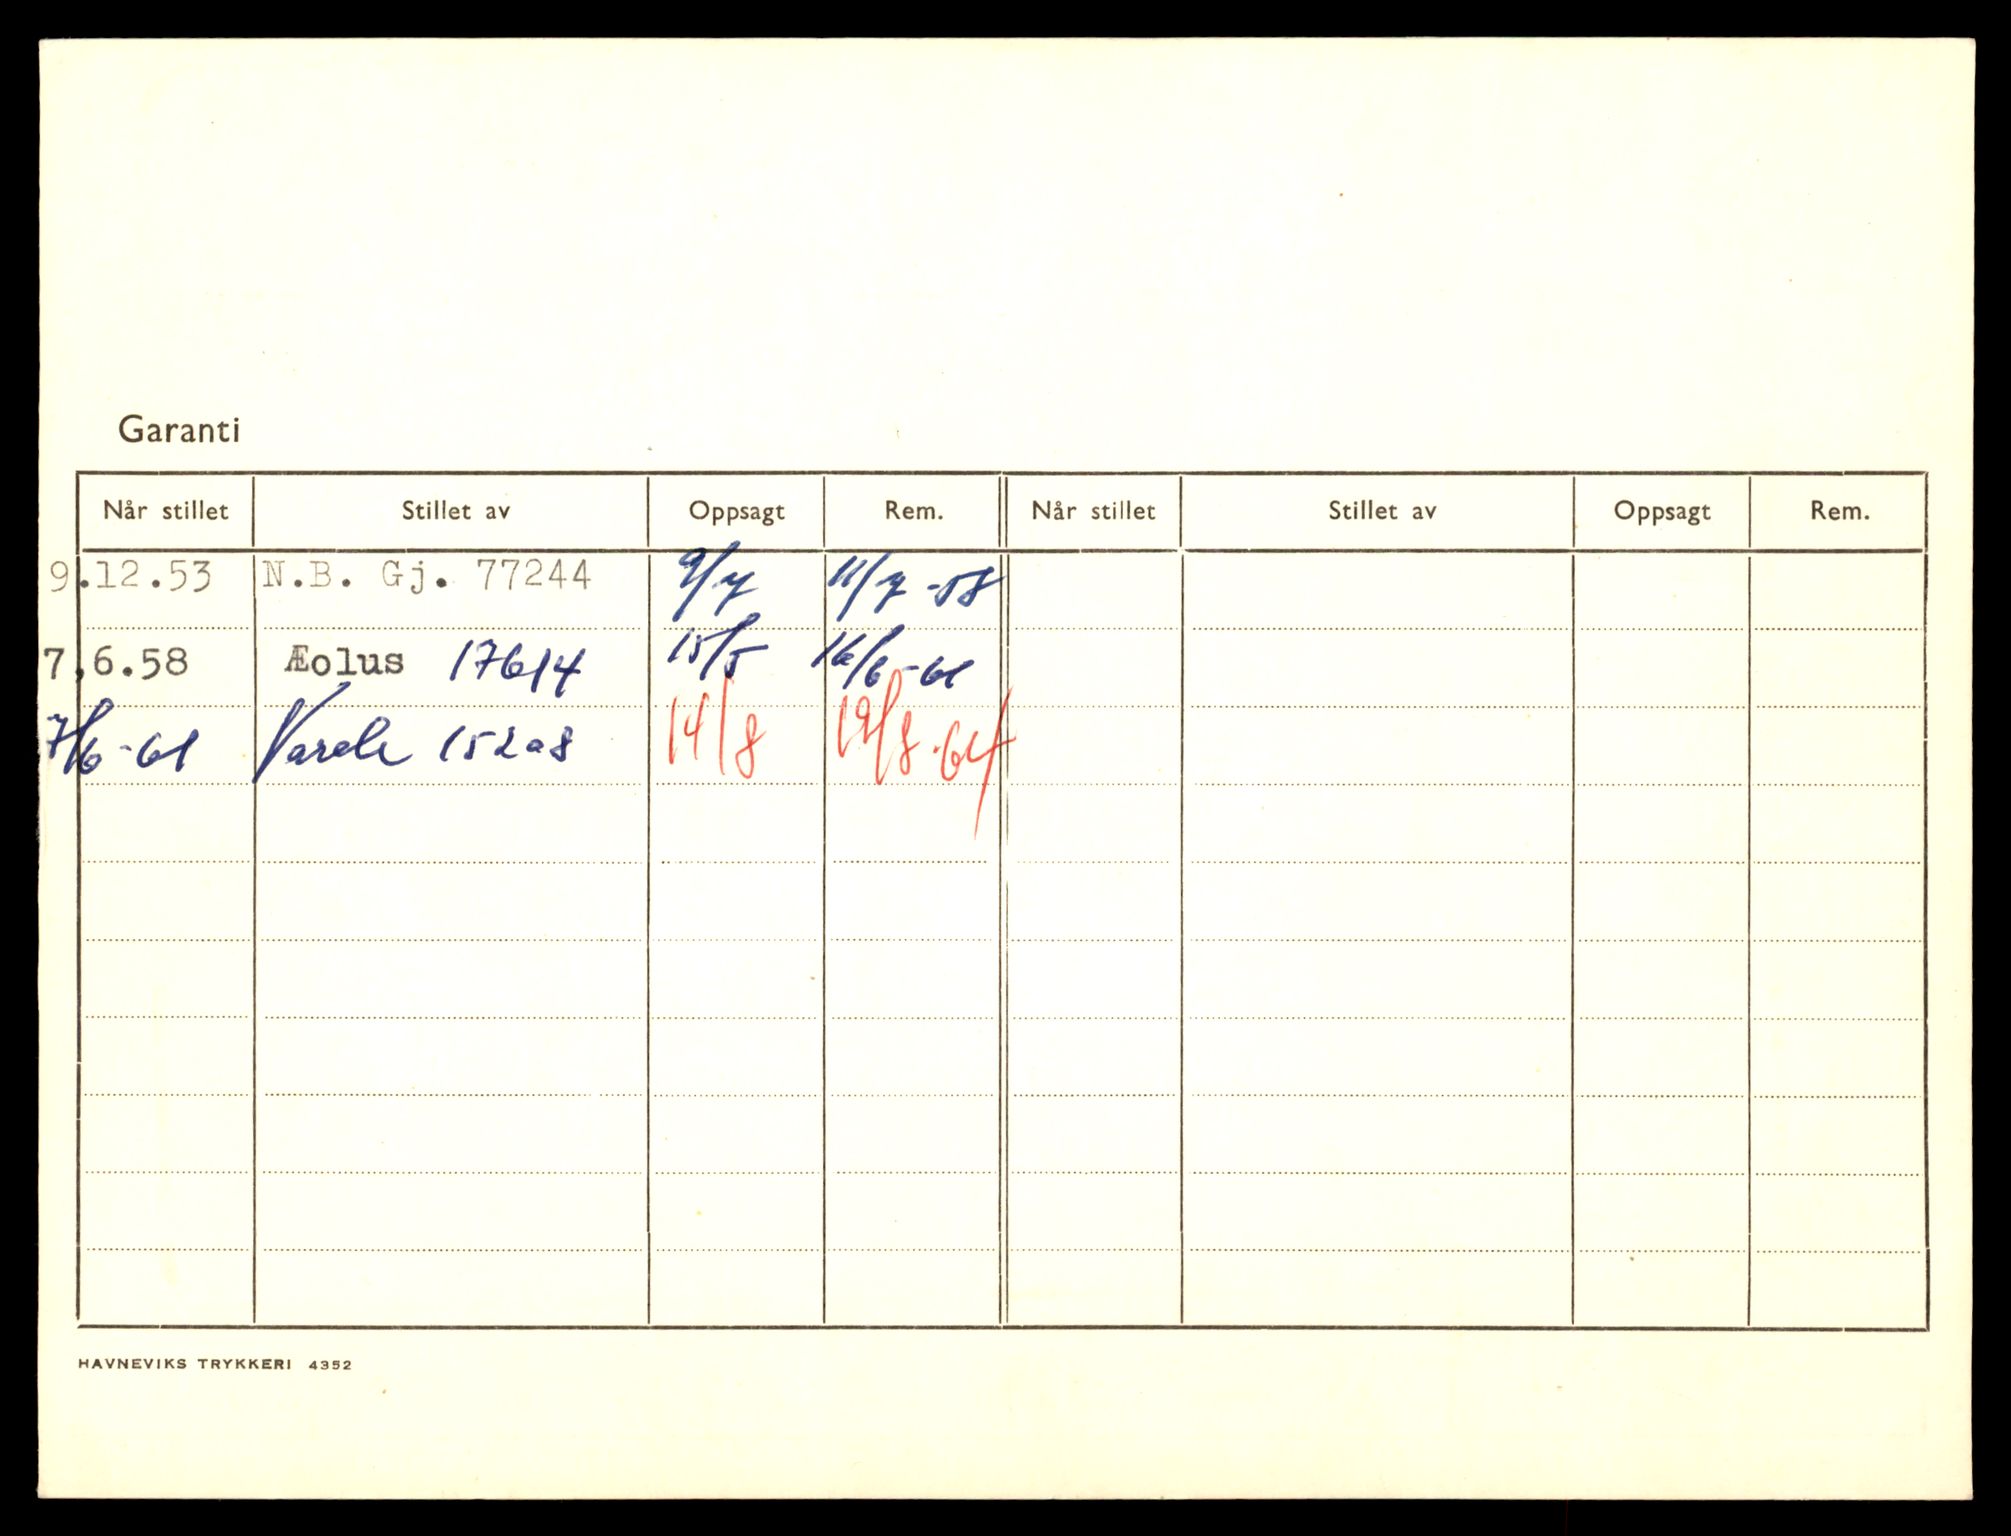 Garanti
Når stillet Stillet av Oppsagt Rem. Når stillet Stillet av Oppsagt Rem.
9.12.53 N.B. Gj. 77244 9/7 11/7-58
7.6.58 Æolus 17614 15/5 16/6-61
7/6-61 15208 14/8 19/8-64
HAVNEVIKS TRYKKERI 4352